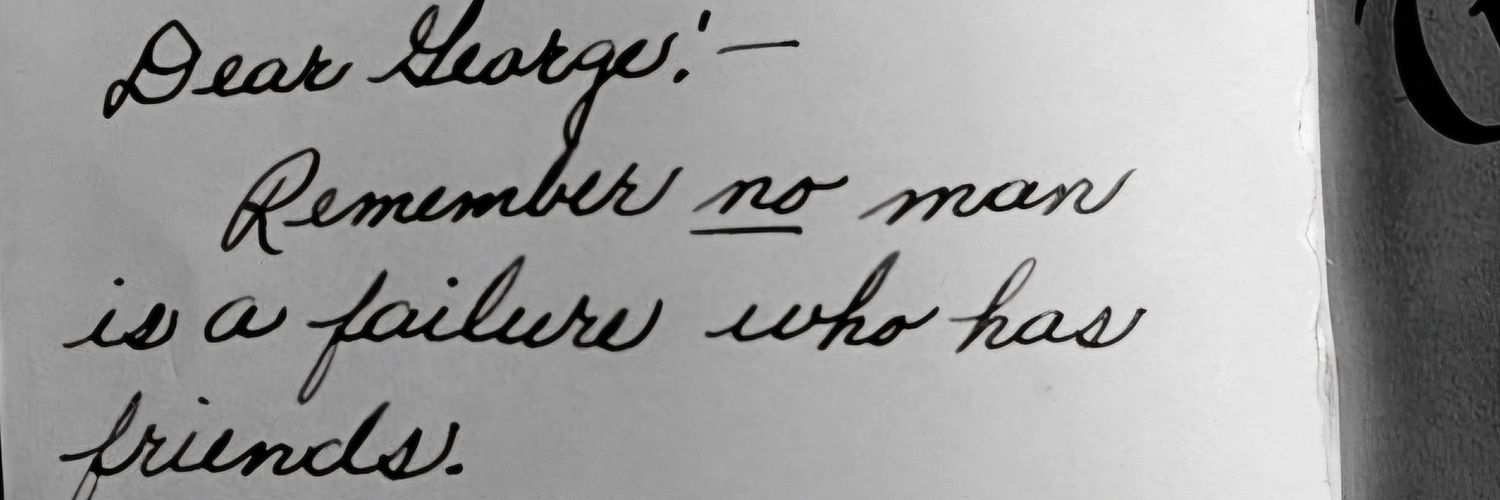 Dear George:—
Remember no man
is a failure who has
friends.